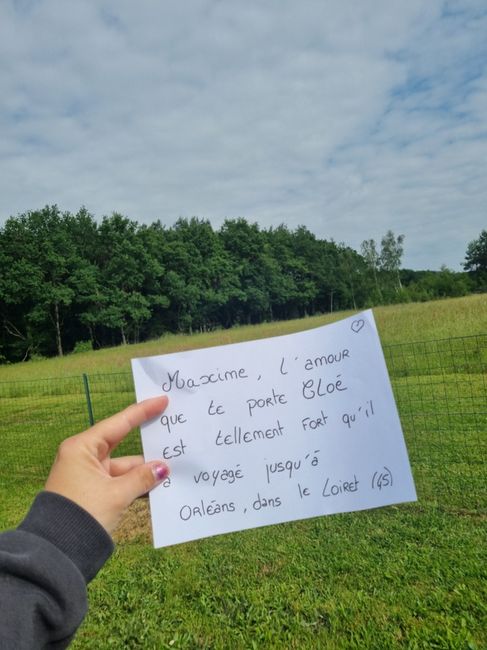 Maxime, l'amour
que te porte Cloé
est tellement fort qu'il
a voyagé jusqu'à
Orléans, dans le Loiret (45)